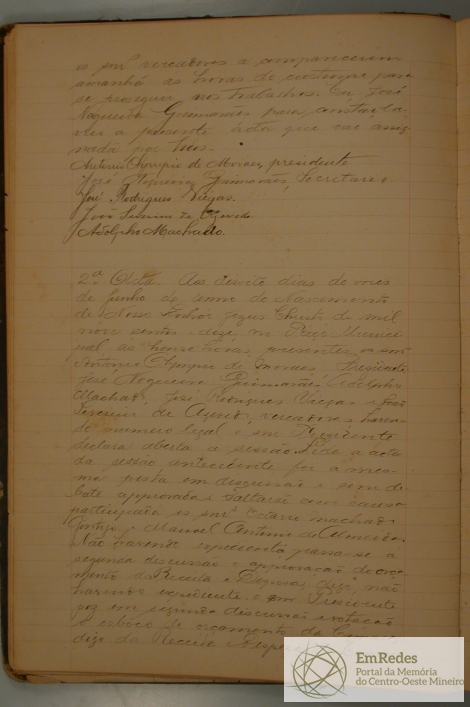 os snrs vereadores a comparecerem
amanhã as horas do costume para
se proseguir nos trabalhos. Eu José
Nogueira Guimarães para constar la-
vrei a presente acta que vae assig-
nada por
Antonio Olympio de Moraes, presidente
José Nogueira Guimarães, Secretario
José Rodrigues Viegas.
José Severino de Azevedo
Adolpho Machado.
2ª Acta. Aos dias do mes
de Junho de anno do Nascimento
de Nosso Senhor Jezus Christo de mil
nove centos no Paço Munici-
pal ás horas, presentes os snrs
Antonio Olympio de Moraes, Presidente
José Nogueira Guimarães, Adolpho
Machado, José Rodrigues Viegas e José
Severino de Azevedo, vereadores, haven-
do numero legal o snr Presidente
declara aberta a sessão. Lida a acta
da sessão antecedente foi a mes-
ma posta em discussão e sem de-
bate approvada. Faltarão com causa
participada os snrs Octavio Machado
Gontijo e Manoel Antonio de Almeida.
Não havendo passa-se a
segunda discussão e approvação do orça-
mento da Receita e Despesa, digo, não
havendo expediente o snr Presidente
poz em segunda discussão e votação
o esboço de orçamento da
digo da Receita e Despesa
EmRedes
Portal da Memória
do Centro-Oeste Mineiro